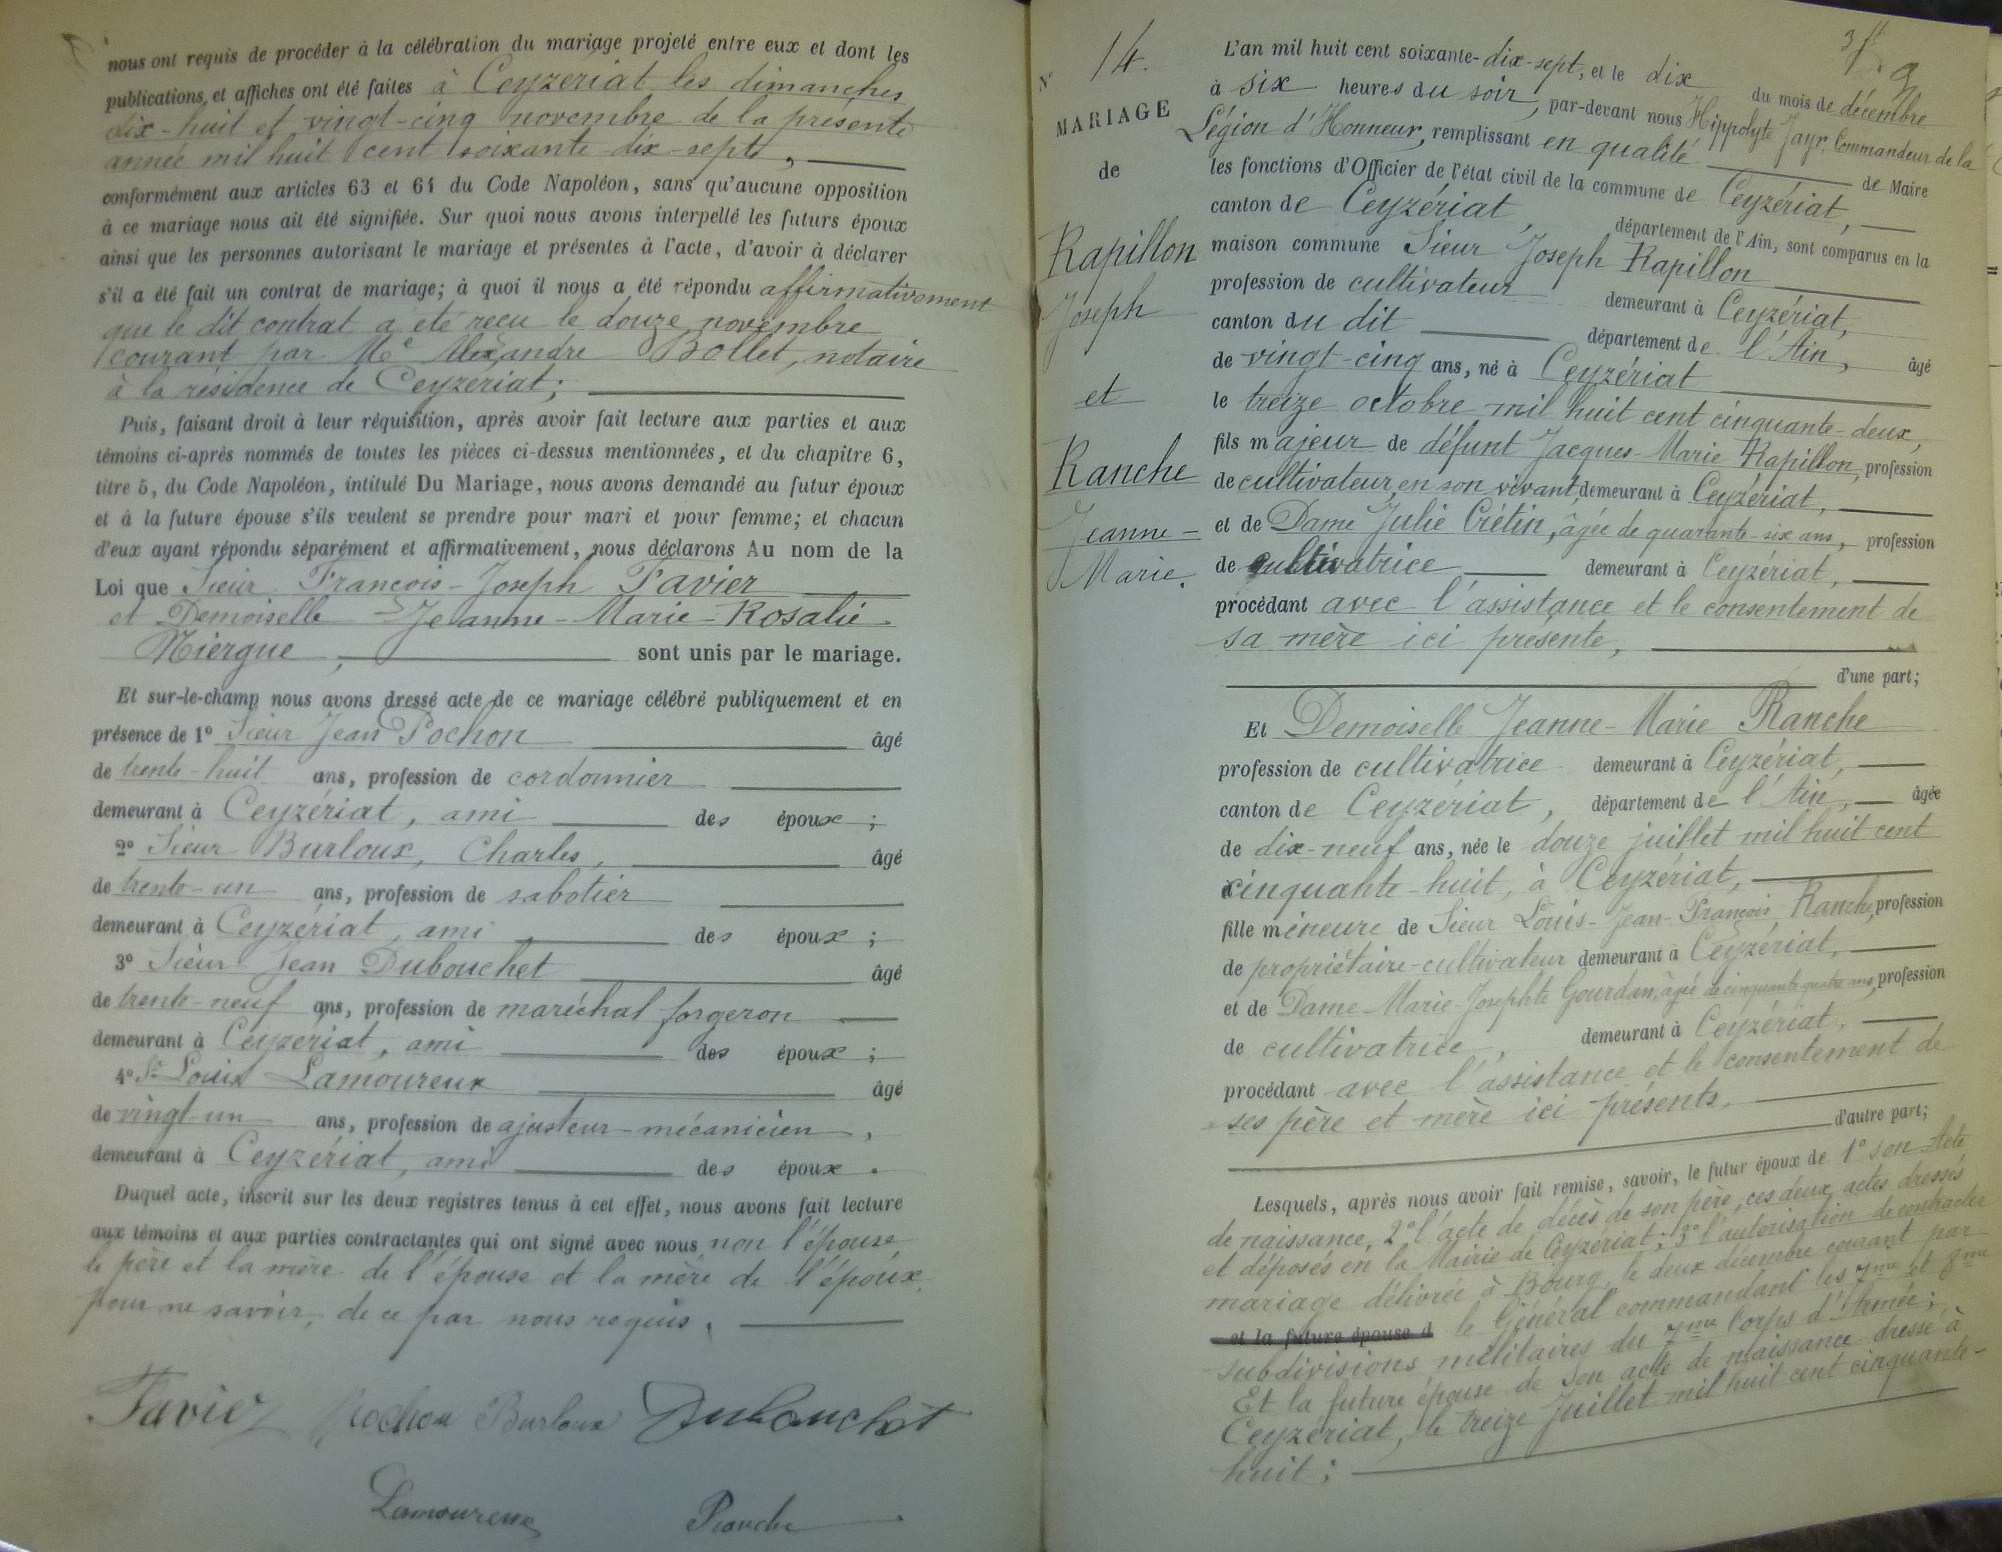 nous ont requis de procéder à la célébration du mariage projeté entre eux et dont les
publications et affiches ont été faites à Ceyzériat les dimanches
dix-huit et vingt-cinq novembre de la présente
année mil huit cent soixante dix-sept,
conformément aux articles 63 et 64 du Code Napoléon, sans qu'aucune opposition
à ce mariage nous ait été signifiée. Sur quoi nous avons interpellé les futurs époux
ainsi que les personnes autorisant le mariage et présentes à l'acte, d'avoir à déclarer
s'il a été fait un contrat de mariage; à quoi il nous a été répondu affirmativement
que le dit contrat a été reçu le douze novembre
courant par Me Alexandre Bollet, notaire
à la résidence de Ceyzériat;
Puis, faisant droit à leur réquisition, après avoir fait lecture aux parties et aux
témoins ci-après nommés de toutes les pièces ci-dessus mentionnées, et du chapitre 6,
titre 5, du Code Napoléon, intitulé Du Mariage, nous avons demandé au futur époux
et à la future épouse s'ils veulent se prendre pour mari et pour femme; et chacun
d'eux ayant répondu séparément et affirmativement, nous déclarons Au nom de la
Loi que Sieur François-Joseph Favier
et Demoiselle Jeanne-Marie-Rosalie
Niergue, sont unis par le mariage.
Et sur-le-champ nous avons dressé acte de ce mariage célébré publiquement et en
présence de 1° Sieur Jean Pochon âgé
de trente-huit ans, profession de cordonnier
demeurant à Ceyzériat, ami des époux;
2° Sieur Burloux, Charles, âgé
de trente-un ans, profession de sabotier
demeurant à Ceyzériat, ami des époux;
3° Sieur Jean Dubouchet âgé
de trente-neuf ans, profession de maréchal forgeron
demeurant à Ceyzériat, ami des époux;
4° Sr Louis Lamoureux âgé
de vingt-un ans, profession de ajusteur-mécanicien,
demeurant à Ceyzériat, ami des époux.
Duquel acte, inscrit sur les deux registres tenus à cet effet, nous avons fait lecture
aux témoins et aux parties contractantes qui ont signé avec nous non l'épouse
le père et la mère de l'épouse et la mère de l'époux,
pour ne savoir, de ce par nous requis.
Favier Pochon Burloux Dubouchet
Lamoureux
N° 14.
MARIAGE
de
Rapillon
Joseph
et
Ranche
Jeanne-
Marie.
L'an mil huit cent soixante-dix-sept, et le dix du mois de décembre
à six heures du soir, par-devant nous Hippolyte Jayr, Commandeur de la
Légion d'Honneur, remplissant en qualité de Maire
les fonctions d'Officier de l'état civil de la commune de Ceyzériat,
canton de Ceyzériat, département de l'Ain, sont comparus en la
maison commune Sieur Joseph Rapillon
profession de cultivateur demeurant à Ceyzériat,
canton du dit département de l'Ain, âgé
de vingt-cinq ans, né à Ceyzériat
le treize octobre mil huit cent cinquante-deux,
fils majeur de défunt Jacques-Marie Rapillon, profession
de cultivateur en son vivant, demeurant à Ceyzériat,
et de Dame Julie Crétin, âgée de quarante-six ans, profession
de cultivatrice demeurant à Ceyzériat,
procédant avec l'assistance et le consentement de
sa mère ici présente,
d'une part;
Et Demoiselle Jeanne-Marie Ranche
profession de cultivatrice demeurant à Ceyzériat,
canton de Ceyzériat, département de l'Ain, âgée
de dix-neuf ans, née le douze juillet mil huit cent
cinquante-huit, à Ceyzériat,
fille mineure de Sieur Louis-Jean-François Ranche, profession
de propriétaire-cultivateur demeurant à Ceyzériat,
et de Dame Marie-Josephte Gourdan, âgée de cinquante quatre ans, profession
de cultivatrice, demeurant à Ceyzériat,
procédant avec l'assistance et le consentement de
ses père et mère ici présents,
d'autre part;
Lesquels, après nous avoir fait remise, savoir, le futur époux de 1° son Acte
de naissance, 2° l'acte de décès de son père, ces deux actes dressés
et déposés en la Mairie de Ceyzériat; 3° l'autorisation de contracter
mariage délivrée à Bourg, le deux décembre courant par
et la future épouse d le Général commandant les 7me et 8me
subdivisions militaires du 7me Corps d'Armée;
Et la future épouse de son acte de naissance dressé à
Ceyzériat, le treize Juillet mil huit cent cinquante-
huit;